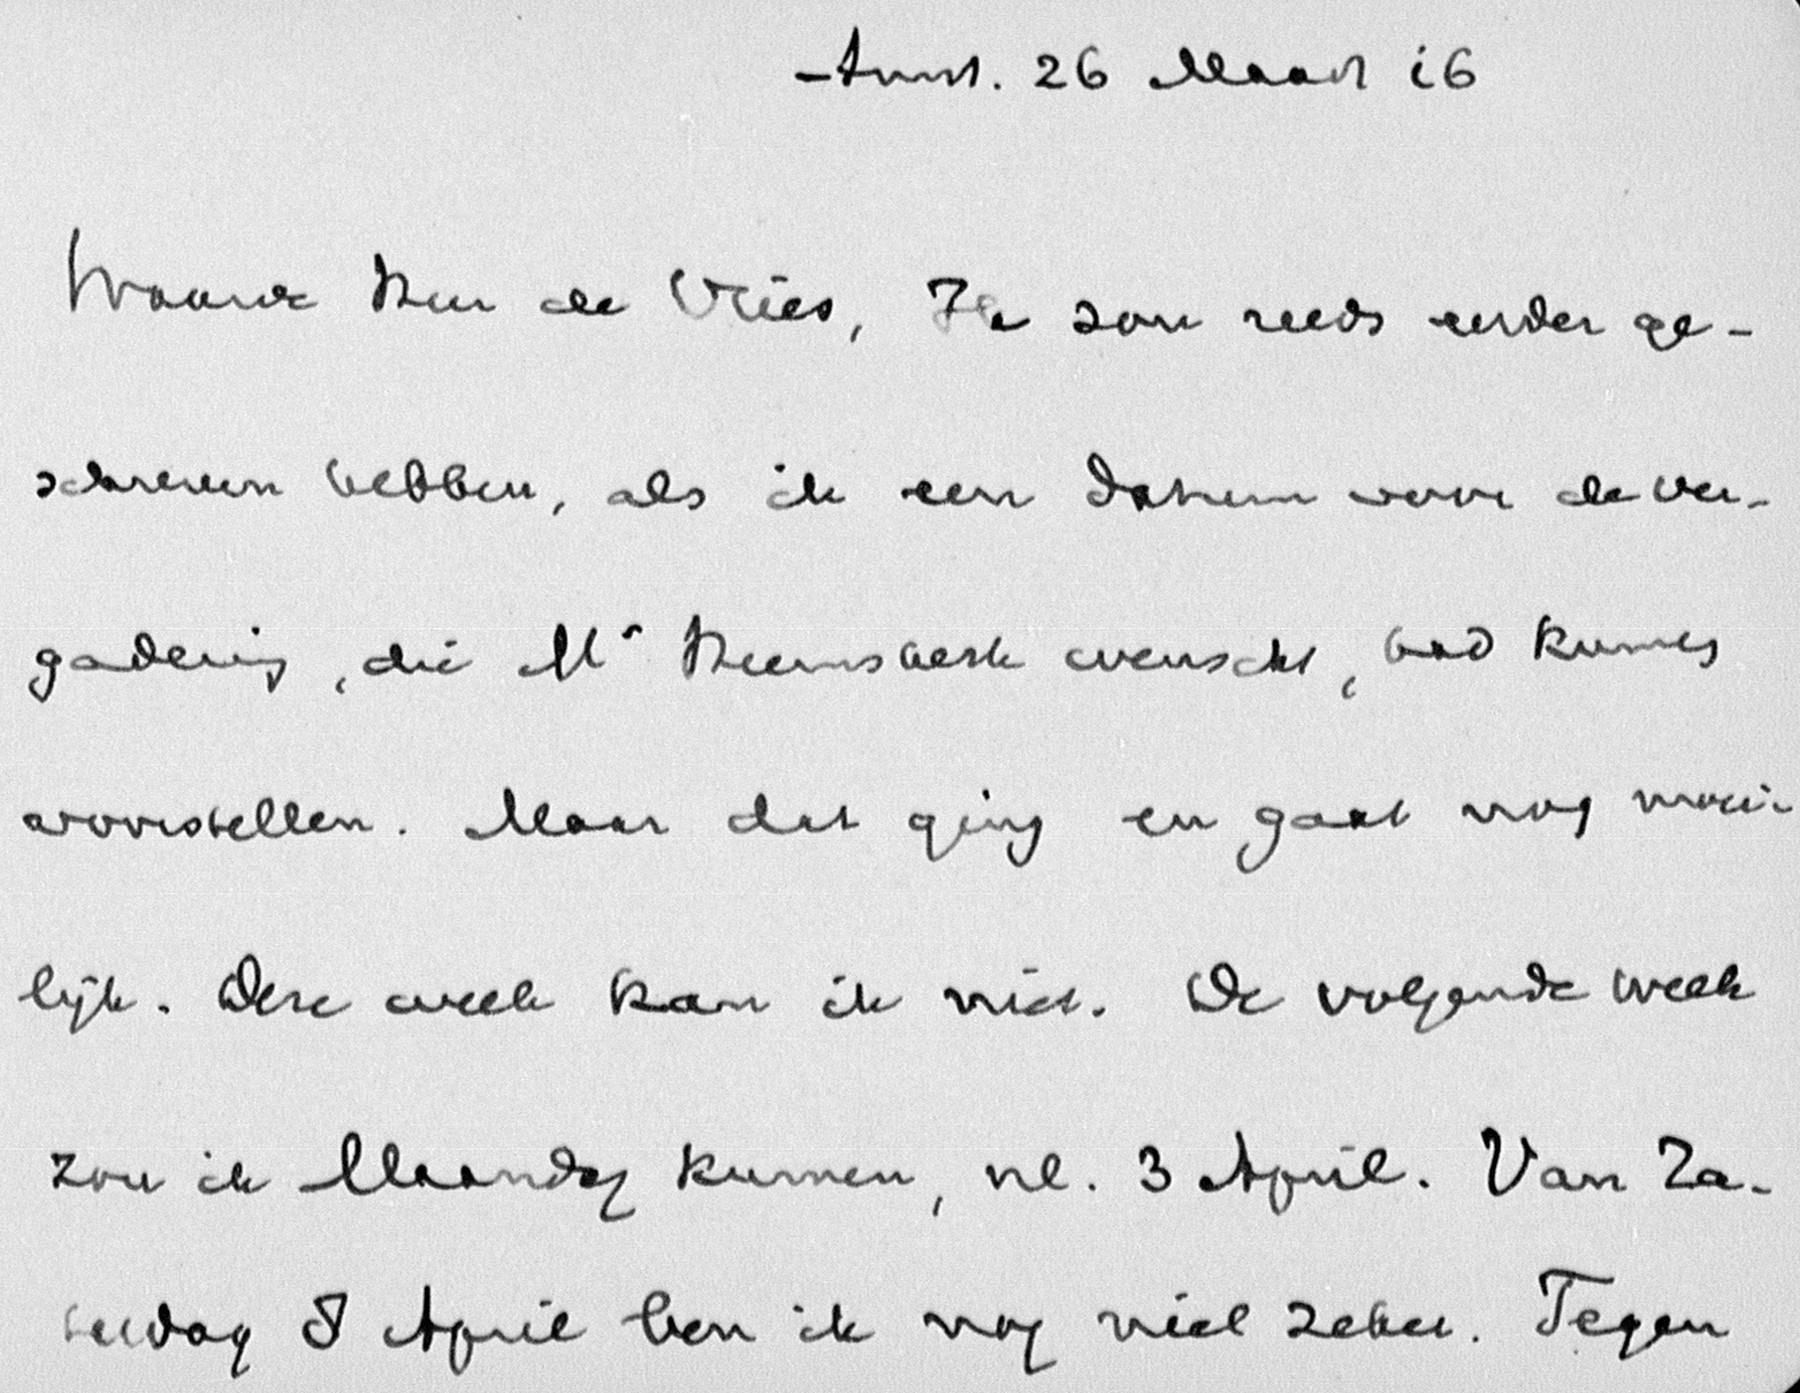 Amst. 26 Maart 16
Waarde Heer de Vries, Ik zou reeds eerder ge-
schreven hebben, als ik een datum voor de ver-
gadering, die Mr Heemskerk wenscht, had kunnen
voorstellen. Maar dat ging en gaat nog moei-
lijk. Deze week kan ik niet. De volgende week
zou ik Maandag kunnen, nl. 3 April. Van Za-
terdag 8 April ben ik nog niet zeker. Tegen